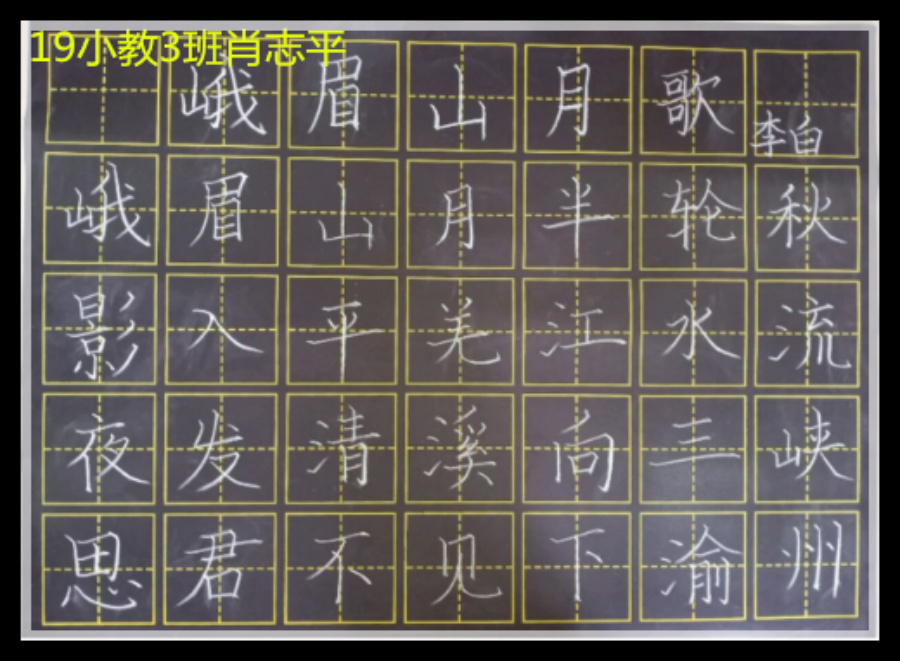 19小教3班肖志平
峨眉山月歌
李白
峨眉山月半轮秋
影入平羌江水流
夜发清溪向三峡
思君不见下渝州